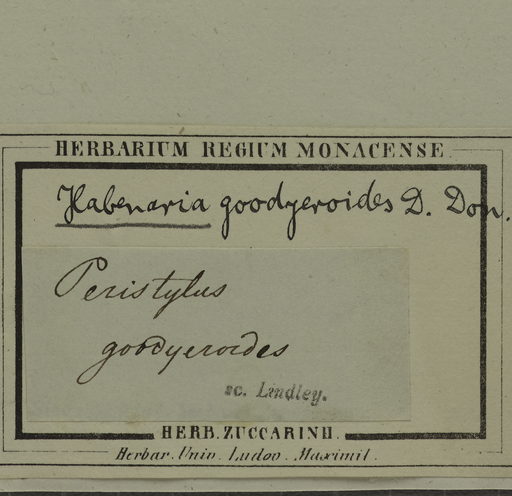 HERBARIUM REGIUM MONACENSE
Habenaria goodyeroides D. Don.
Peristylus
goodyeroides
sc. Lindley.
HERB. ZUCCARINII.
Herbar. Univ. Ludov. Maximil.